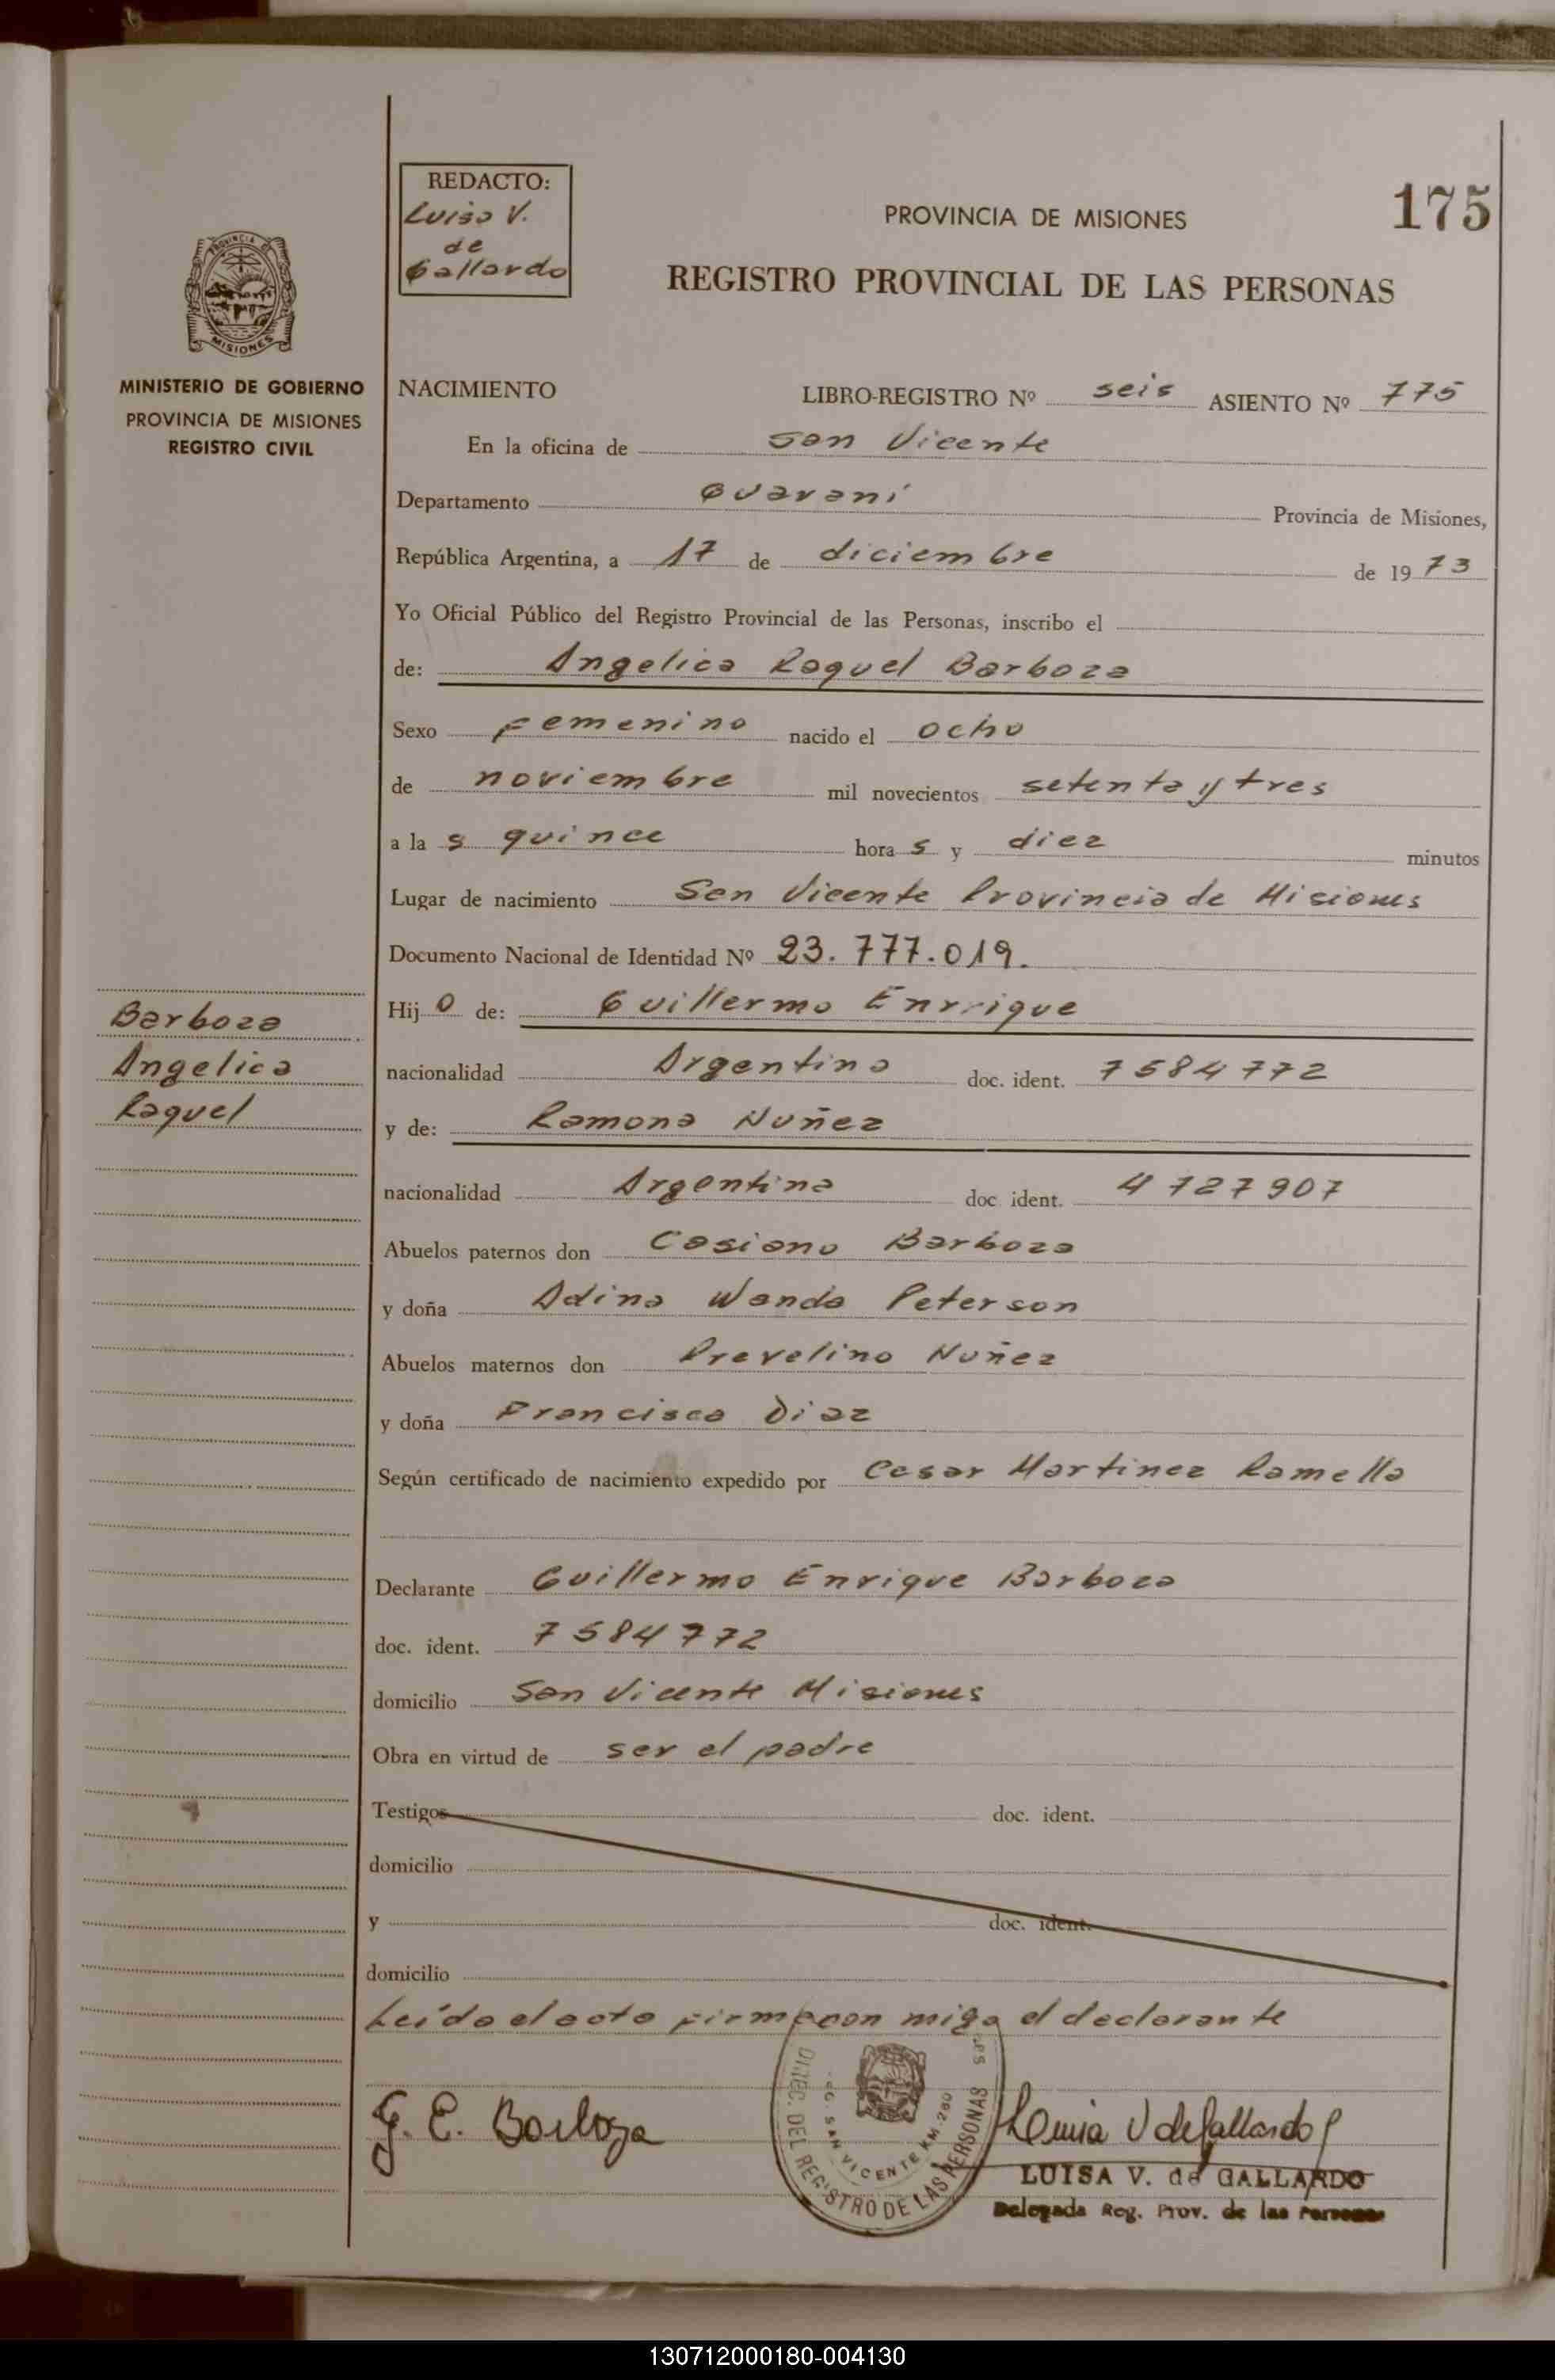 REDACTO:
Luisa V.
de
Gallardo
PROVINCIA DE MISIONES
175
REGISTRO PROVINCIAL DE LAS PERSONAS
PROVINCIA DE
MISIONES
MINISTERIO DE GOBIERNO
PROVINCIA DE MISIONES
REGISTRO CIVIL
NACIMIENTO LIBRO-REGISTRO Nº seis ASIENTO Nº 775
En la oficina de San Vicente
Departamento Guaraní Provincia de Misiones,
República Argentina, a 17 de diciembre de 1973
Yo Oficial Público del Registro Provincial de las Personas, inscribo el
de: Angelica Raquel Barboza
Sexo Femenino nacido el ocho
de noviembre mil novecientos setenta y tres
a la s quince hora s y diez minutos
Lugar de nacimiento San Vicente Provincia de Misiones
Documento Nacional de Identidad Nº 23.777.019.
Hij o de: Guillermo Enrrique
nacionalidad Argentino doc. ident. 7584772
y de: Ramona Nuñez
nacionalidad Argentina doc. ident. 4727907
Abuelos paternos don Casiano Barboza
y doña Adina Wanda Peterson
Abuelos maternos don Nuñez
y doña Francisca Diaz
Según certificado de nacimiento expedido por Cesar Martinez Ramella
Declarante Guillermo Enrique Barboza
doc. ident. 7584772
domicilio San Vicente Misiones
Obra en virtud de ser el padre
Testigos doc. ident.
domicilio
y doc. ident.
domicilio
Leída el acta firma con migo el declarante
Barboza
Angelica
Raquel
G. E. Barboza
DIREC. DEL REGISTRO DE LAS PERSONAS
SAN VICENTE KM. 260
Luisa V de Gallardo
LUISA V. de GALLARDO
Delegada Reg. Prov. de las Personas
130712000180-004130